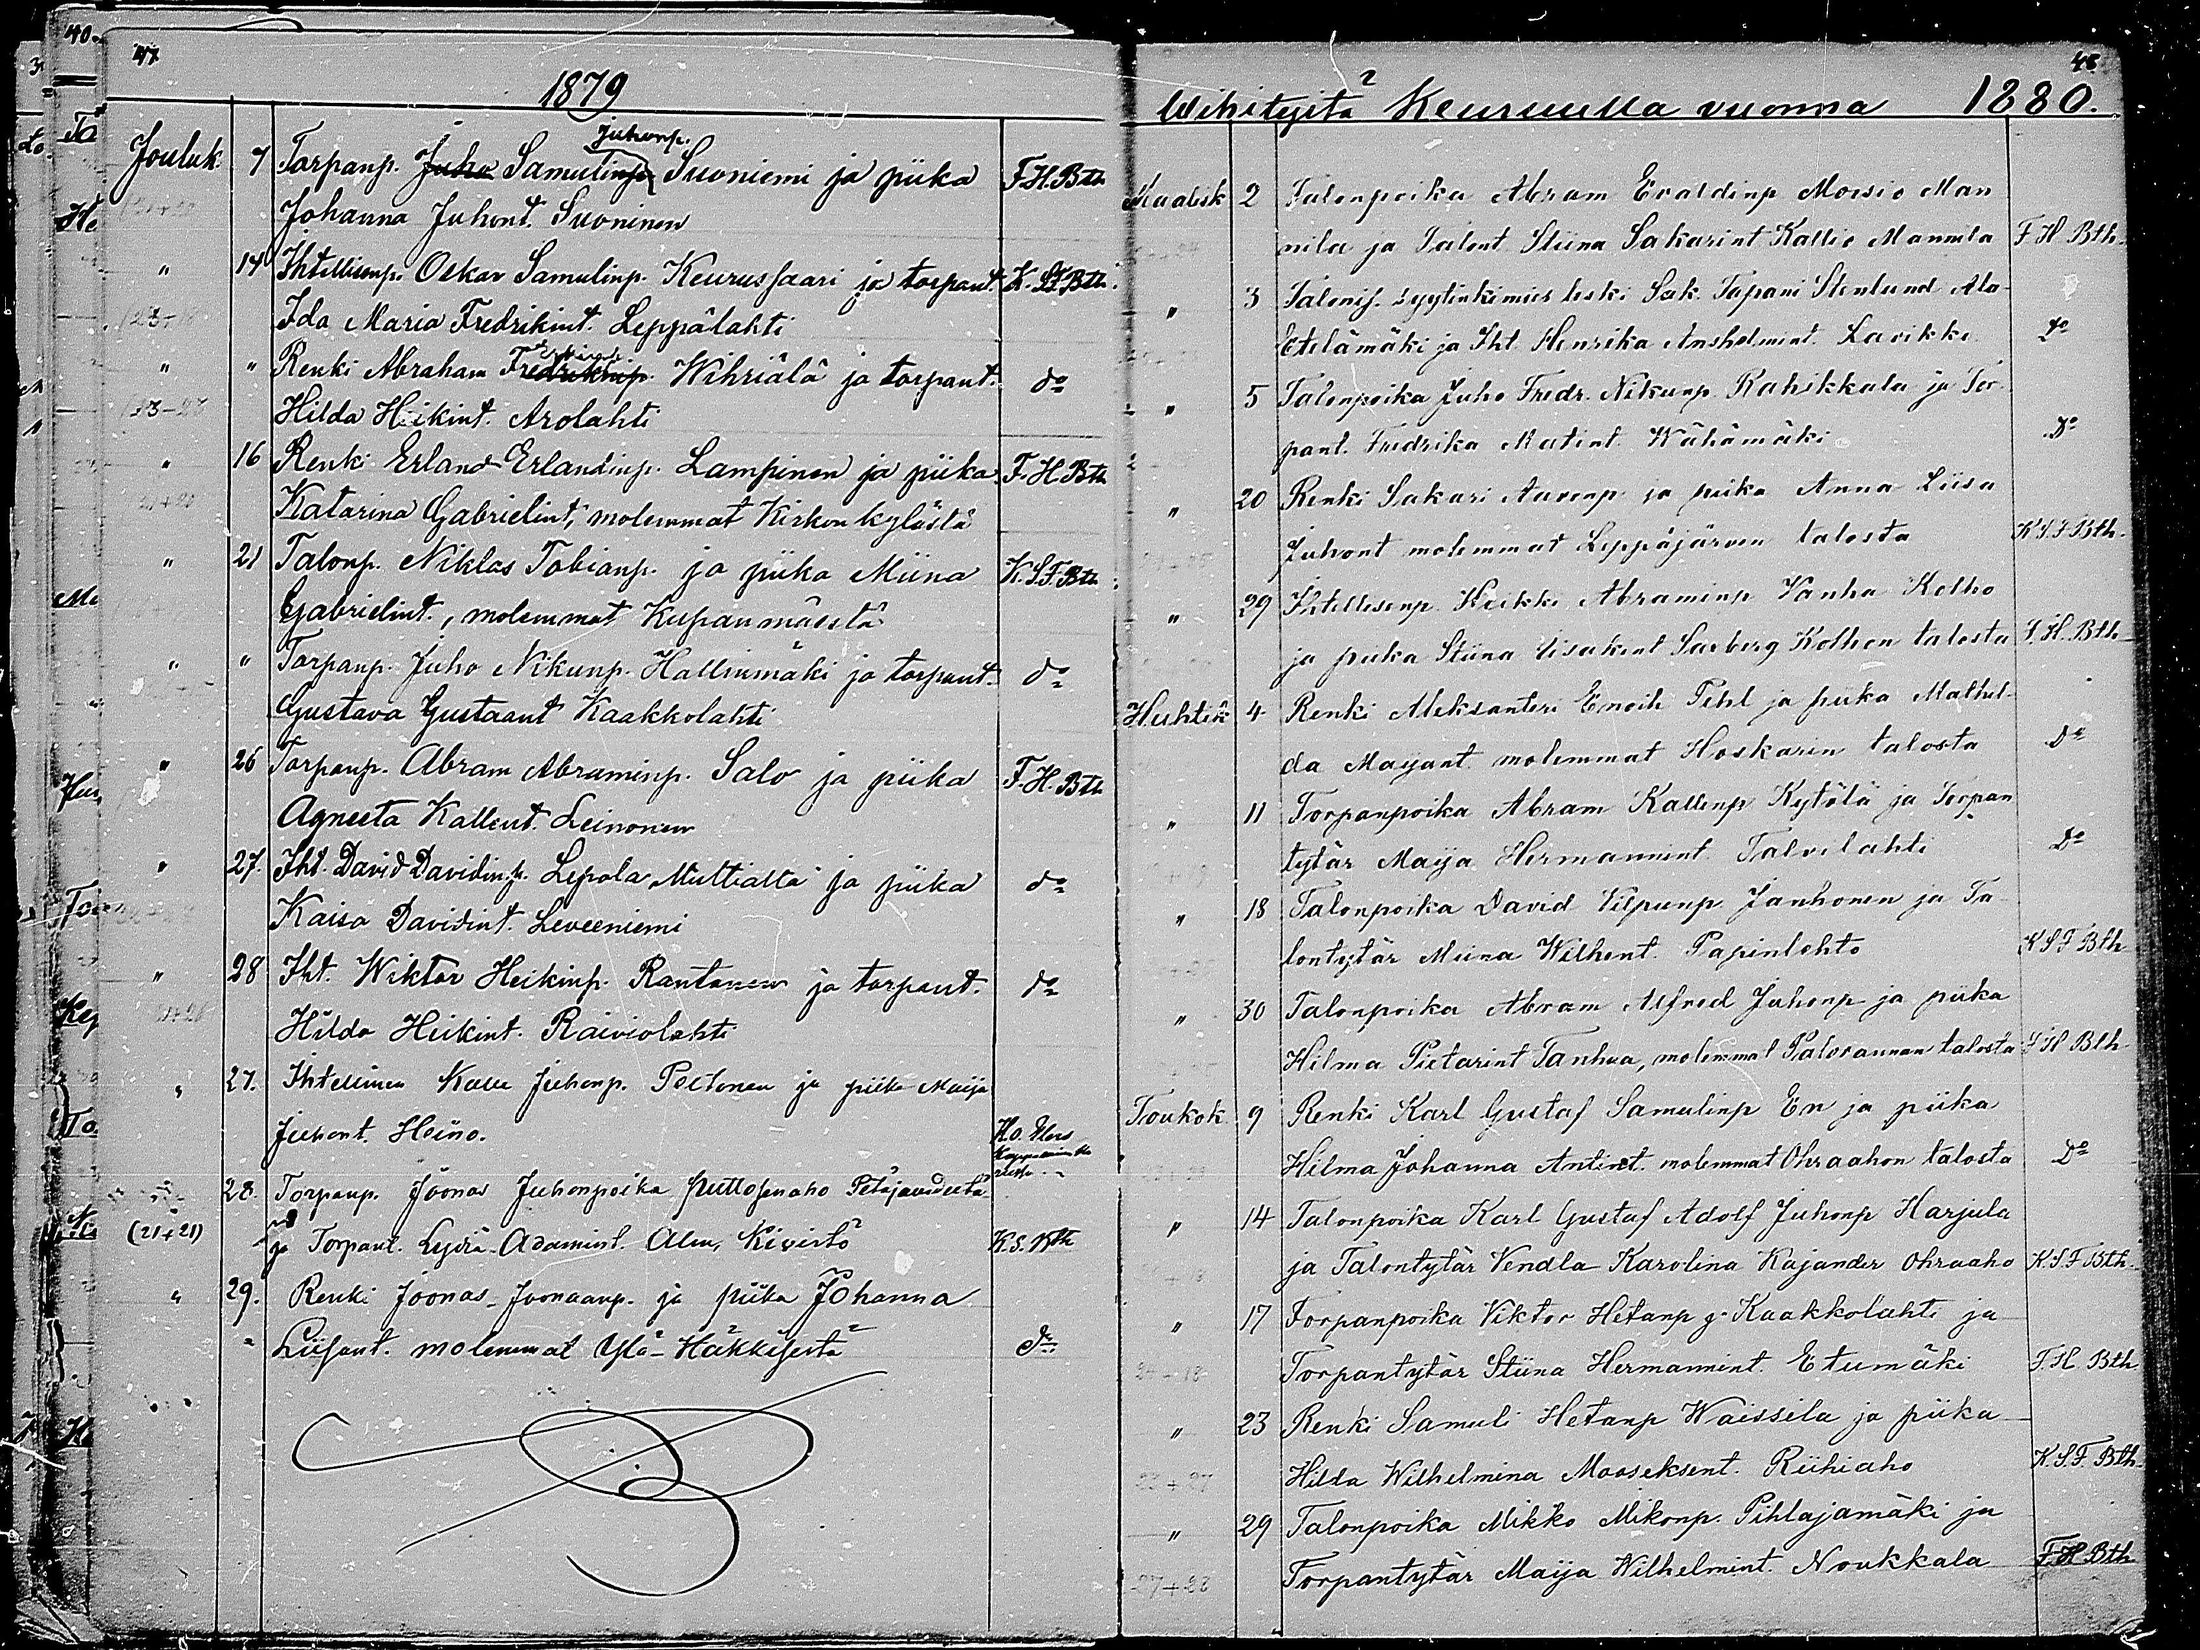 47
1879
Jouluk 7 Torpanp. Juho Samulinp. Juhonp. Suoniemi ja piika F.H.Bth
Johanna Juhont. Suoninen
" 14 Ihtellisenp. Oskar Samulinp. Keurussaari ja torpant. K.S.F.Bth.
Ida Maria Fredrikint. Leppälahti
" " Renki Abraham Fredrikinp. Wihriälä ja torpant. do
Hilda Heikint. Arolahti
" 16 Renki Erland Erlandinp. Lampinen ja piika F.H.Bth
Katarina Gabrielint., molemmat Kirkon kylästä
" 21 Talonp. Niklas Tobianp. ja piika Miina K.S.F.Bth.
Gabrielint., molemmat Kupanmäestä
" " Torpanp. Juho Nikunp. Hallinmäki ja torpant. do
Gustava Gustaant Kaakkolahti
" 26 Torpanp. Abram Abraminp. Salo ja piika F.H.Bth
Agneeta Kallent. Leinonen
" 27. Iht. David Davidinp. Lepola Multialta ja piika do
Kaisa Davidint. Leveeniemi
" 28 Iht. Wiktor Heikinp. Rantanen ja torpant. do
Hilda Heikint. Räiviolahti
" 27. Ihtellinen Kalle Juhonp. Peltonen ja piika Maija
Juhont. Heino.
28. Torpanp. Joonas Juhonpoika Petäjävedeltä
(21+21) ja Torpant. Lydia Adamint. Alm, Kivistö K.S.Bth
" 29. Renki Joonas Joonaanp. ja piika Johanna
Liisant. molemmat Ylä-Häkkisestä do
48.
Wihityitä Keuruulla vuonna 1880.
Maalisk 2 Talonpoika Abram Evaldinp Moisio Man
nila ja Talont Stiina Sakarint Kallio Mannila F H Bth.
" 3 leski Sak. Tapani Stenlund Ala
Etelämäki ja Iht. Henrika Anshelmint. Lavikko Do
" 5 Talonpoika Juho Fredr. Nikunp. Rahikkala ja Tor
pant. Fredrika Matint Wähämäki Do
" 20 Renki Sakari Aaronp ja piika Anna Liisa
Juhont molemmat Leppäjärven talosta K.S.F Bth.
" 29 Ihtellisenp. Heikki Abraminp Vanha Kolho
ja piika Stiina Iisakint Saxberg Kolhon talosta F.H.Bth
Huhtik 4 Renki Aleksanteri Enoih Pihl ja piika Mathil-
da Maijant. molemmat Hoskarin talosta Do
" 11 Torpanpoika Abram Kallenp Kytölä ja Torpan
tytär Maija Hermannint. Talvilahti Do
" 18 Talonpoika David Vilpunp Janhonen ja Ta
lontytär Miina Wilhent. Papinlohto K S F Bth
" 30 Talonpoika Abram Alfred Juhonp ja piika
Hilma Pietarint Tanhua, molemmat Palorannan talosta F H Bth
Toukok. 9 Renki Karl Gustaf Samulinp En ja piika
Hilma Johanna Antint. molemmat Ohraahon talosta Do
" 14 Talonpoika Karl Gustaf Adolf Juhonp Harjula
ja Talontytär Vendla Karolina Kajander Ohraaho K.S.F Bth.
" 17 Torpanpoika Viktor Hetanp g. Kaakkolahti ja
Torpantytär Stiina Hermannint. Etumäki F.H Bth
" 23 Renki Samuli Hetanp Waissila ja piika
23+27 Hilda Wilhelmina Mooseksent. Riihiaho K.S.F Bth.
" 29 Talonpoika Mikko Mikonp. Pihlajamäki ja
27+23 Torpantytär Maija Wilhelmint. Noukkala F.H Bth